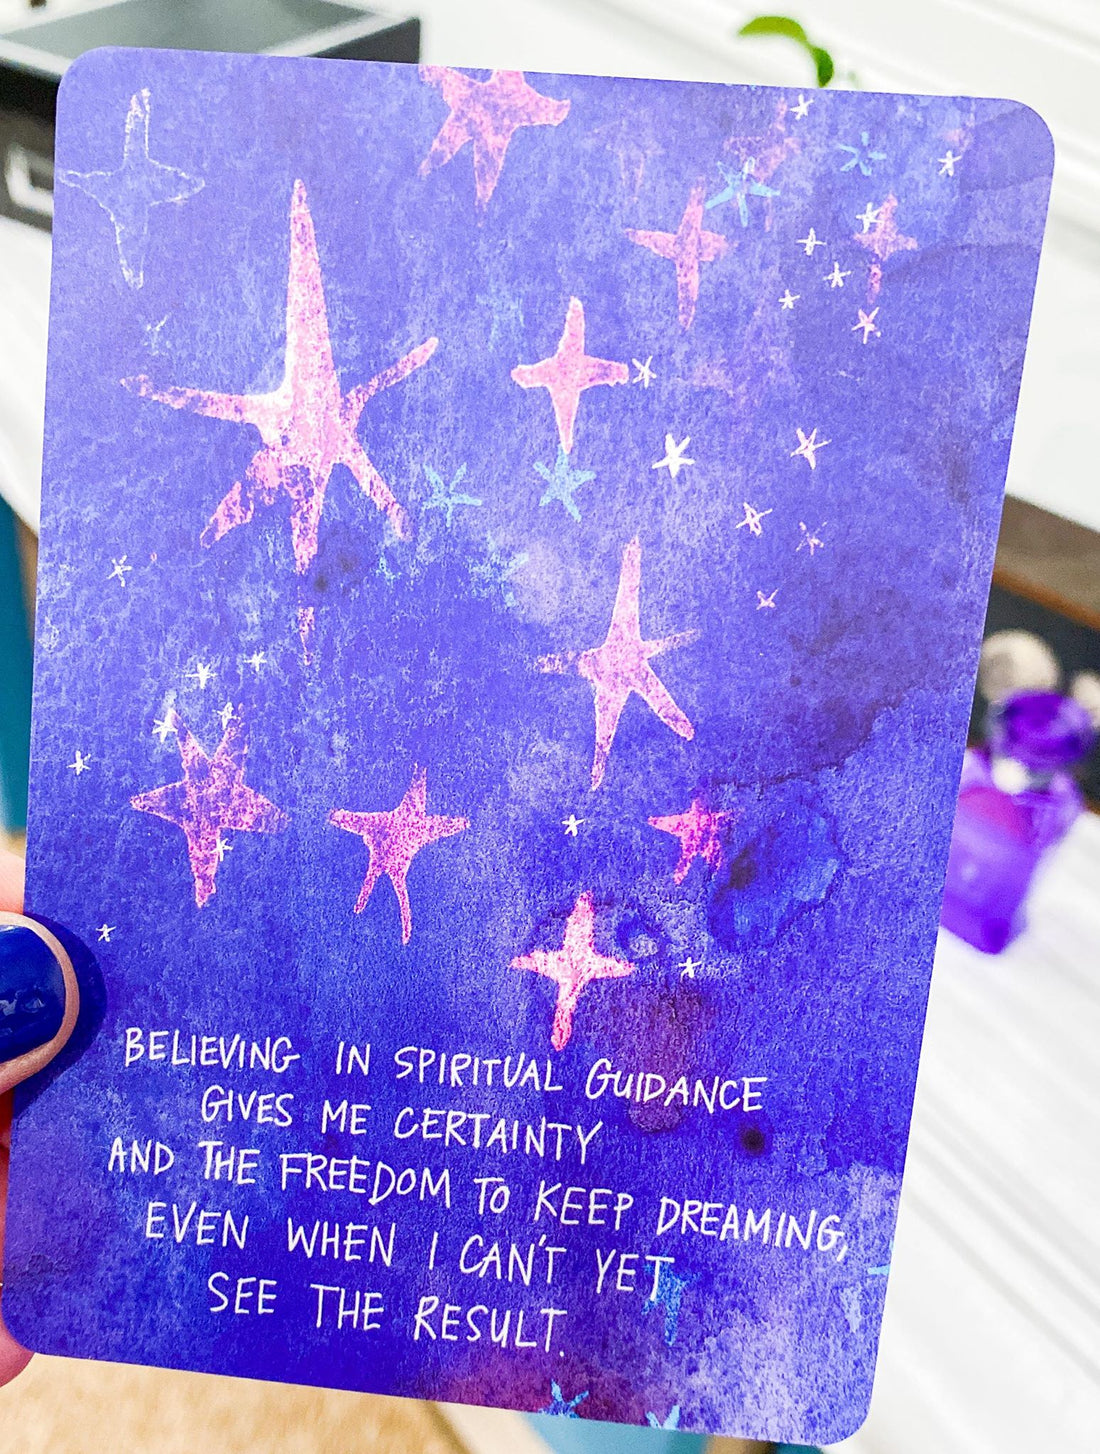 BELIEVING IN SPIRITUAL GUIDANCE
GIVES ME CERTAINTY
AND THE FREEDOM TO KEEP DREAMING,
EVEN WHEN I CAN'T YET
SEE THE RESULT.